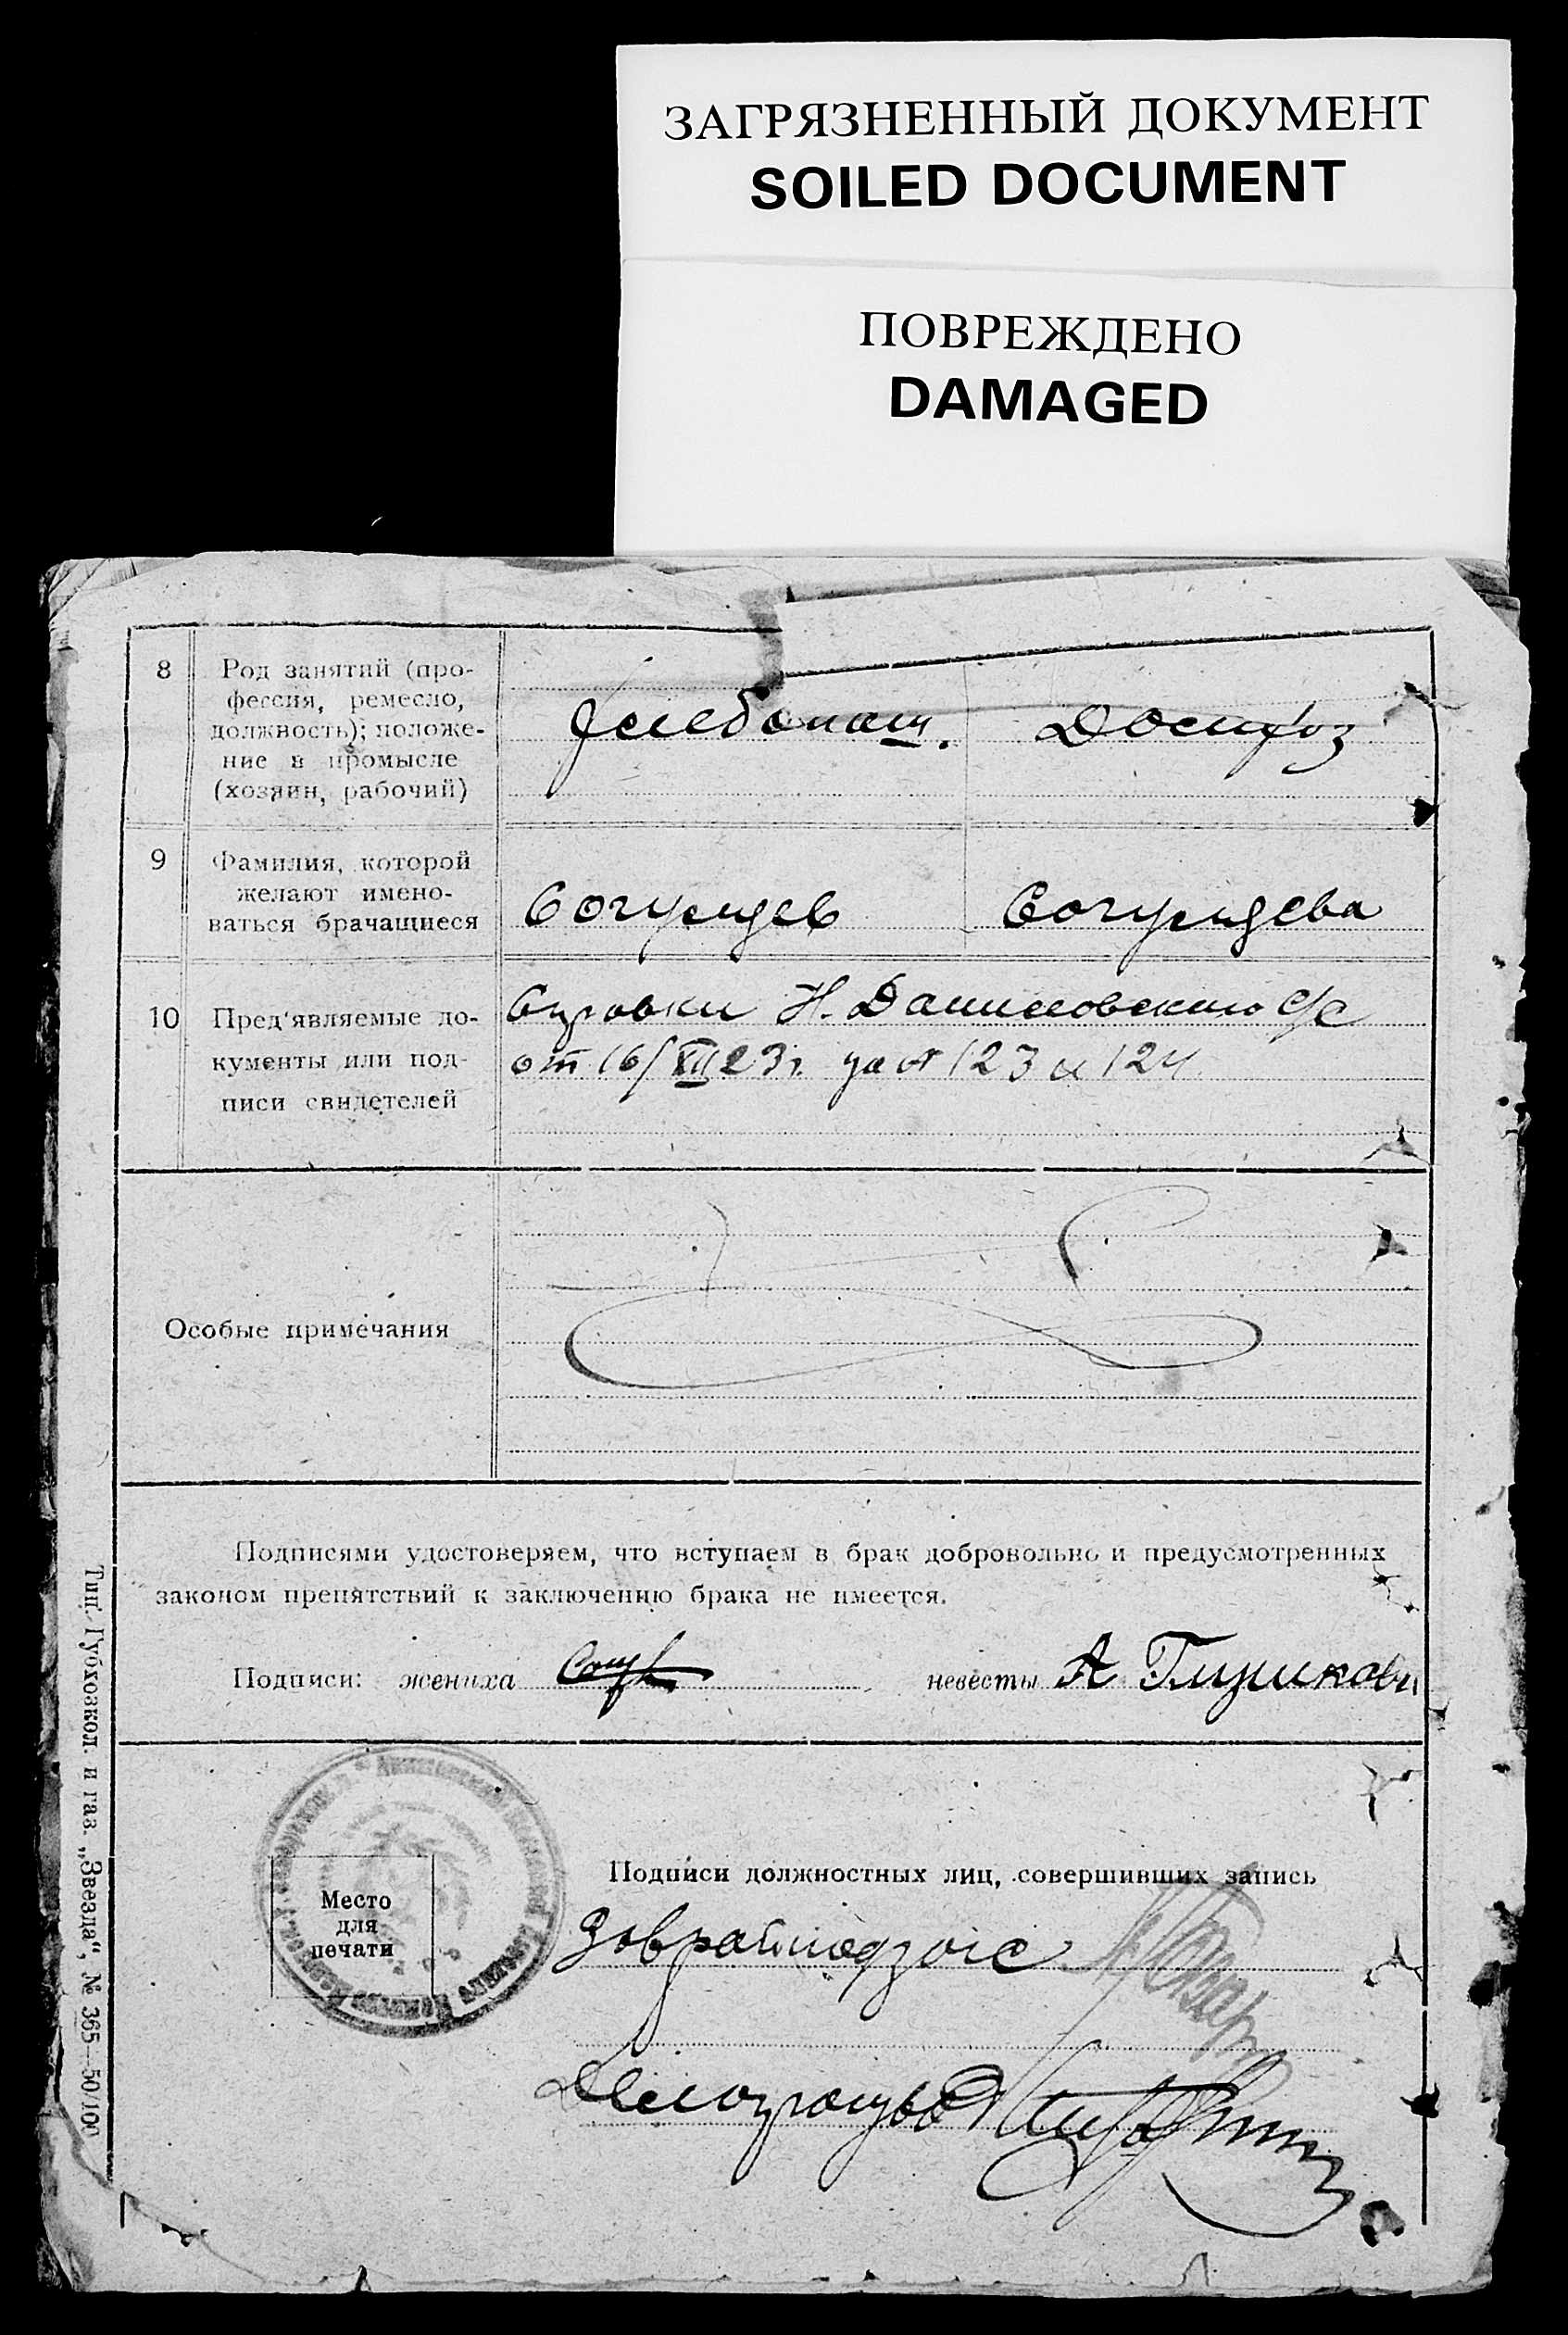 ЗАГРЯЗНЕННЫЙ ДОКУМЕНТ
SOILED DOCUMENT
ПОВРЕЖДЕНО
DAMAGED
8
Род занятий (про-
фессия, ремесло,
должность); положе-
ние в промысле
(хозяин, рабочий)
Хлебопаш.
Домхоз
9
Фамилия, которой
желают имено-
ваться брачащиеся
10
Пред'являемые до-
кументы или под-
писи свидетелей
Справки Н. Даниловского с/с
от 16/XII 23 г. за № 123 и 124
Особые примечания
Подписями удостоверяем, что вступаем в брак добровольно и предусмотренных
законом препятствий к заключению брака не имеется.
Подписи: жениха
невесты А
Место
для
печати
Подписи должностных лиц, совершивших запись
Делопроизвод
Тип. Губхозкол. и газ. „Звезда“, № 365—50/100